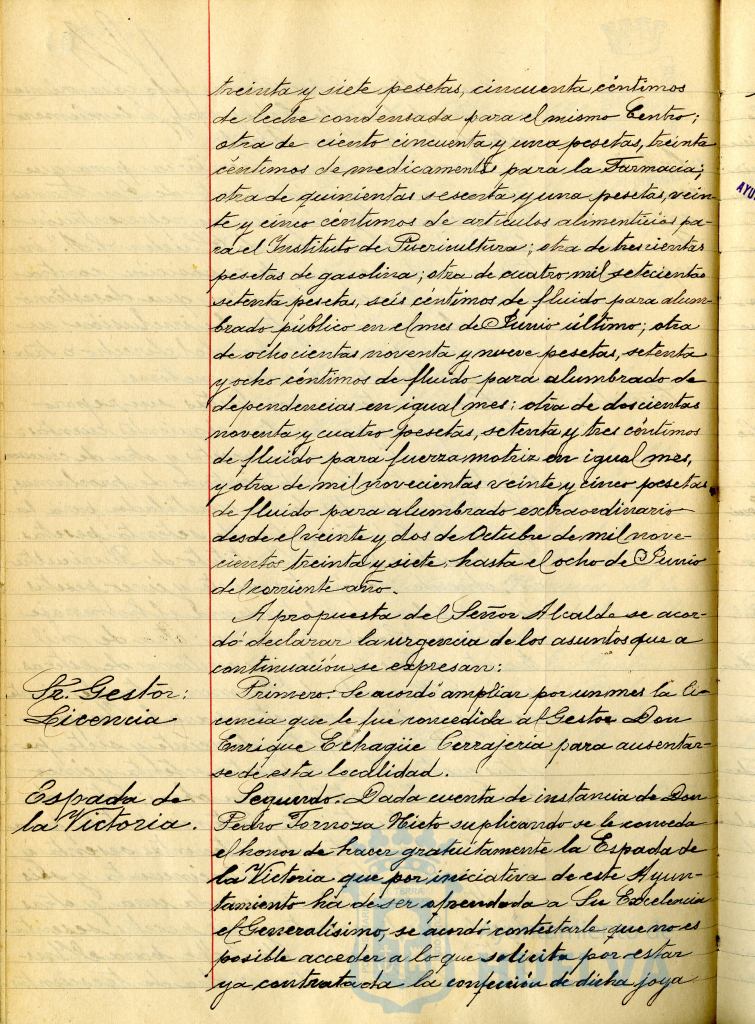 treinta y siete pesetas, cincuenta céntimos
de leche condensada para el mismo Centro;
otra de ciento cincuenta y una pesetas, treinta
céntimos de medicamentos para la Farmacia;
otra de quinientas sesenta y una pesetas, vein-
te y cinco céntimos de artículos alimenticios pa-
ra el Instituto de Puericultura; otra de trescientas
pesetas de gasolina; otra de cuatro mil setecientas
setenta pesetas, seis céntimos de fluido para alum-
brado público en el mes de Junio último; otra
de ochocientas noventa y nueve pesetas, setenta
y ocho céntimos de fluido para alumbrado de
dependencias en igual mes; otra de doscientas
noventa y cuatro pesetas, setenta y tres céntimos
de fluido para fuerza motriz en igual mes,
y otra de mil novecientas veinte y cinco pesetas
de fluido para alumbrado extraordinario
desde el veinte y dos de Octubre de mil nove-
cientos treinta y siete, hasta el ocho de Junio
del corriente año.
A propuesta del Señor Alcalde se acor-
dó declarar la urgencia de los asuntos que a
continuación se expresan:
Sr. Gestor:
Licencia
Primero. Se acordó ampliar por un mes la li-
cencia que le fué concedida al Gestor Don
Enrique Echagüe Cerrajeria para ausentar-
se de esta localidad.
Espada de
la Victoria.
Segundo. Dada cuenta de instancia de Don
Pedro Tornoza Nieto suplicando se le conceda
el honor de hacer gratuitamente la Espada de
la Victoria que por iniciativa de este Ayun-
tamiento ha de ser ofrendada a Su Excelencia
el Generalísimo, se acordó contestarle que no es
posible acceder a lo que solicita por estar
ya contratada la confección de dicha joya
AYU